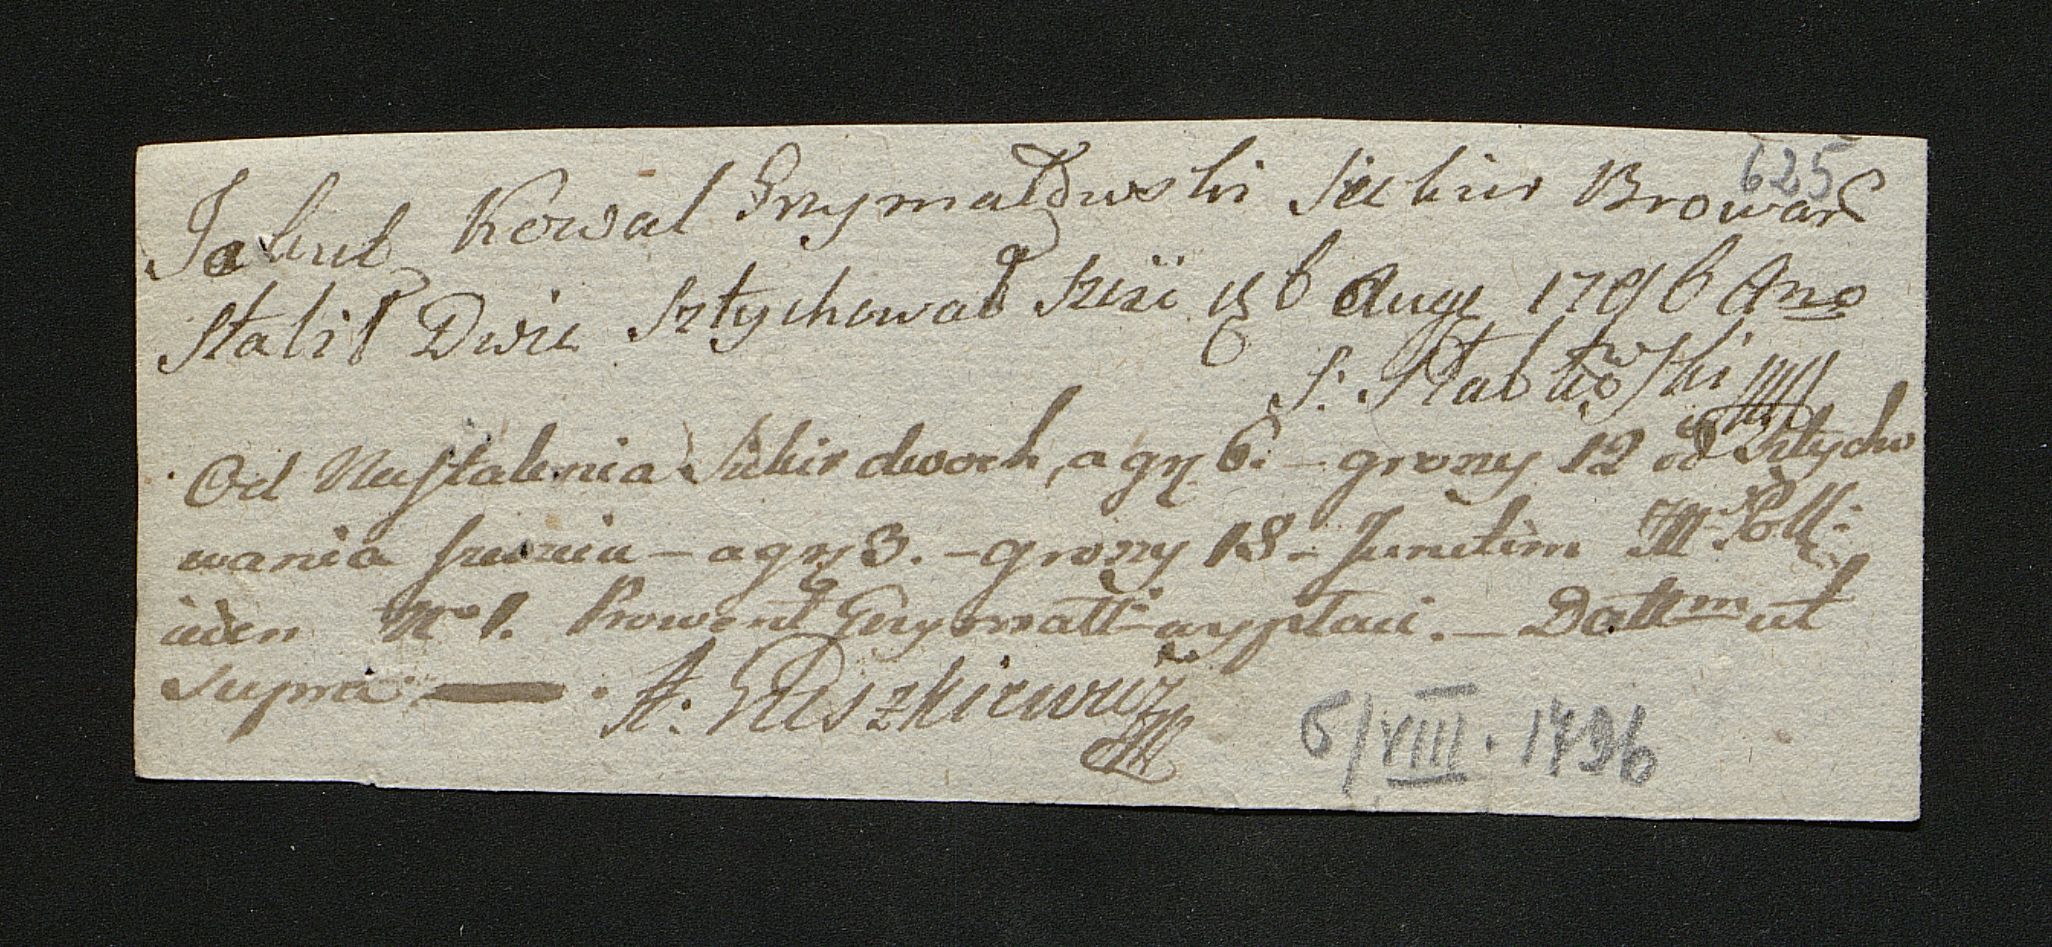 625
Jakub Kowal Grzymałowski Siekier Browar
Stalił Dwie Sztychował sześć 6 Aug 1796 Ano
S: Stablowski
Od Nastalenia Siekir dwoch, a gr 6. – groszy 12 od Sztycho
wania sześciu – a gr 3. – groszy 18 – Junctim Zł Poll:
ieden No 1. Prowent Grzymałł: wypłaci. – Dattm ut
Supra. — . A: Hruszkiewicz
6/VIII. 1796